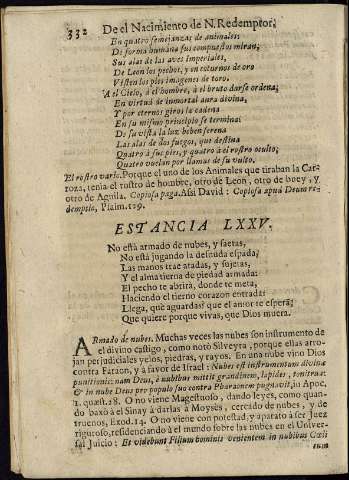 332 De el Nacimiento de N. Redemptor,
En quatro semejanças de animales:
De forma humana sus compuestos miran;
Sus alas de las aves imperiales,
De Leon los pechos, y en contornos de oro
Visten los pies imagenes de toro.
A el Cielo, à el hombre, à el bruto darse ordena;
En virtud de inmortal aura divina,
Y por eternos giros la cadena
En su mismo principio se termina:
De su vista la luz beben serena
Las alas de dos fuegos, que destina
Quatro à sus pies, y quatro à el rostro oculto;
Quatro vuelan por llamas de su vulto.
El rostro vario. Porque el uno de los Animales que tiraban la Car-
roza, tenia el rostro de hombre, otro de Leon, otro de boey, y
otro de Aguila. Copiosa paga. Assi David: Copiosa apud Deum re-
demptio, Psalm. 129.
ESTANCIA LXXV.
No està armado de nubes, y saetas,
No està jugando la desnuda espada;
Las manos trae atadas, y sujetas,
Y el alma tierna de piedad armada:
El pecho te abrirà, donde te meta,
Haciendo el tierno corazon entrada:
Llega, què aguardas? que el amor te espera;
Que quiere porque vivas, que Dios muera.
ARmado de nubes. Muchas veces las nubes son instrumento de
el divino castigo, como notò Silveyra, porque ellas arro-
jan perjudiciales yelos, piedras, y rayos. En una nube vino Dios
contra Faraon, y à favor de Israel: Nubes est instrumentum divinæ
punitionis: nam Deus, è nubibus mittit grandinem, lapides, tonitrua:
& in nube Deus pro populo suo contra Pharaonem pugnavit, in Apoc.
1. quæst. 28. O no viene Magestuoso, dando leyes, como quan-
do baxò à el Sinay à darlas à Moysès, cercado de nubes, y de
truenos, Exod. 14. O no viene con potestad, y aparato à ser Juez
riguroso, residenciando à el mundo sobre las nubes en el Univer-
sal Juicio: Et videbunt Filium hominis venientem in nubibus Cœli
cum